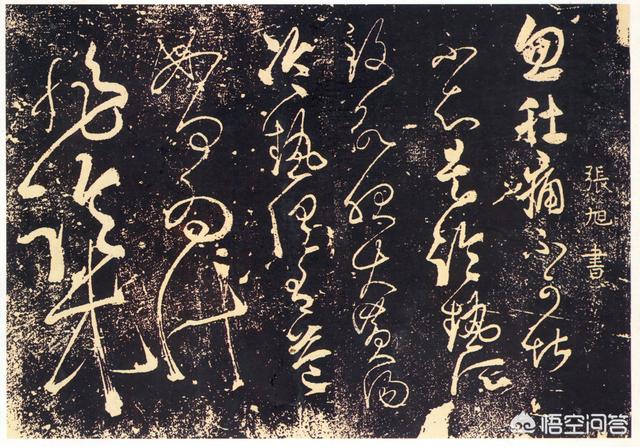 忽肚痛不可堪
張旭書
不知是冷熱所
致欲服大黃湯
冷熱俱有益
如何為計
非臨床
悟空问答